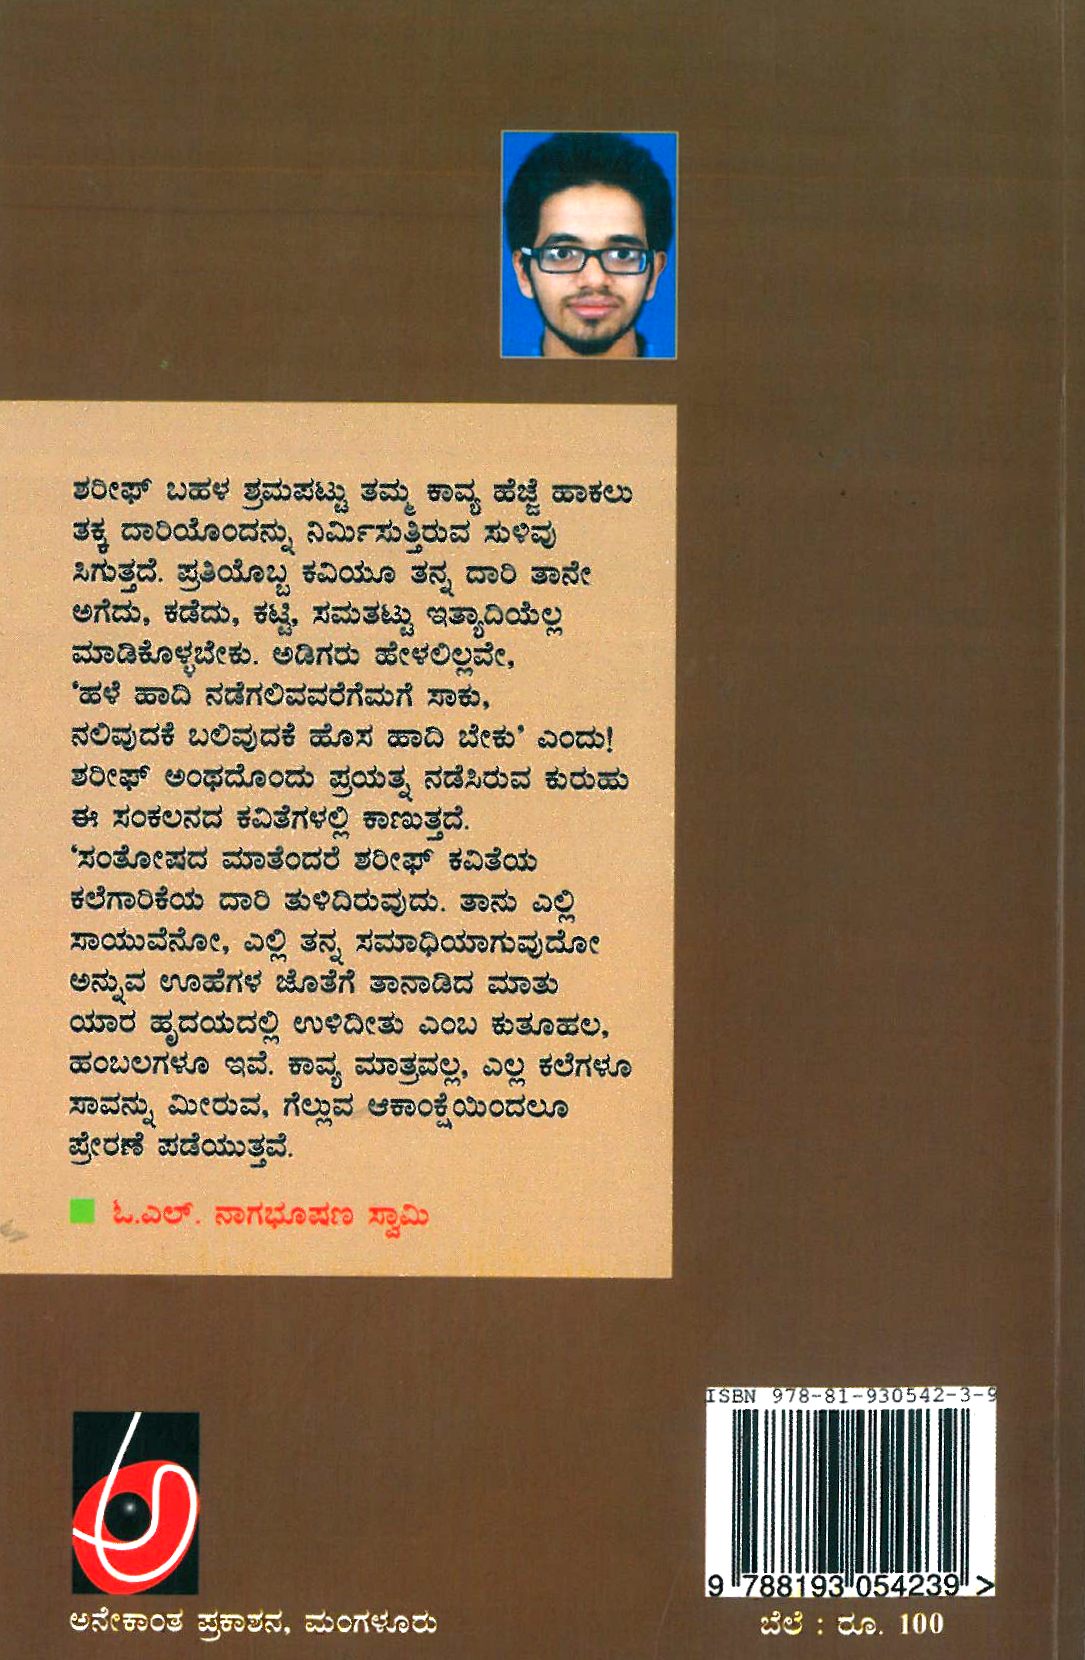 ಶರೀಫ್ ಬಹಳ ಶ್ರಮಪಟ್ಟು ತಮ್ಮ ಕಾವ್ಯ ಹೆಜ್ಜೆ ಹಾಕಲು
ತಕ್ಕ ದಾರಿಯೊಂದನ್ನು ನಿರ್ಮಿಸುತ್ತಿರುವ ಸುಳಿವು
ಸಿಗುತ್ತದೆ. ಪ್ರತಿಯೊಬ್ಬ ಕವಿಯೂ ತನ್ನ ದಾರಿ ತಾನೇ
ಅಗೆದು, ಕಡೆದು, ಕಟ್ಟಿ, ಸಮತಟ್ಟು ಇತ್ಯಾದಿಯೆಲ್ಲ
ಮಾಡಿಕೊಳ್ಳಬೇಕು. ಅಡಿಗರು ಹೇಳಲಿಲ್ಲವೇ,
'ಹಳೆ ಹಾದಿ ನಡೆಗಲಿವವರೆಗೆಮಗೆ ಸಾಕು,
ನಲಿವುದಕೆ ಬಲಿವುದಕೆ ಹೊಸ ಹಾದಿ ಬೇಕು' ಎಂದು!
ಶರೀಫ್ ಅಂಥದೊಂದು ಪ್ರಯತ್ನ ನಡೆಸಿರುವ ಕುರುಹು
ಈ ಸಂಕಲನದ ಕವಿತೆಗಳಲ್ಲಿ ಕಾಣುತ್ತದೆ.
'ಸಂತೋಷದ ಮಾತೆಂದರೆ ಶರೀಫ್ ಕವಿತೆಯ
ಕಲೆಗಾರಿಕೆಯ ದಾರಿ ತುಳಿದಿರುವುದು. ತಾನು ಎಲ್ಲಿ
ಸಾಯುವೆನೋ, ಎಲ್ಲಿ ತನ್ನ ಸಮಾಧಿಯಾಗುವುದೋ
ಅನ್ನುವ ಊಹೆಗಳ ಜೊತೆಗೆ ತಾನಾಡಿದ ಮಾತು
ಯಾರ ಹೃದಯದಲ್ಲಿ ಉಳಿದೀತು ಎಂಬ ಕುತೂಹಲ,
ಹಂಬಲಗಳೂ ಇವೆ. ಕಾವ್ಯ ಮಾತ್ರವಲ್ಲ, ಎಲ್ಲ ಕಲೆಗಳೂ
ಸಾವನ್ನು ಮೀರುವ, ಗೆಲ್ಲುವ ಆಕಾಂಕ್ಷೆಯಿಂದಲೂ
ಪ್ರೇರಣೆ ಪಡೆಯುತ್ತವೆ.
ಓ.ಎಲ್. ನಾಗಭೂಷಣ ಸ್ವಾಮಿ
ISBN 978-81-930542-3-9
9 788193 054239 >
ಅನೇಕಾಂತ ಪ್ರಕಾಶನ, ಮಂಗಳೂರು
ಬೆಲೆ : ರೂ. 100